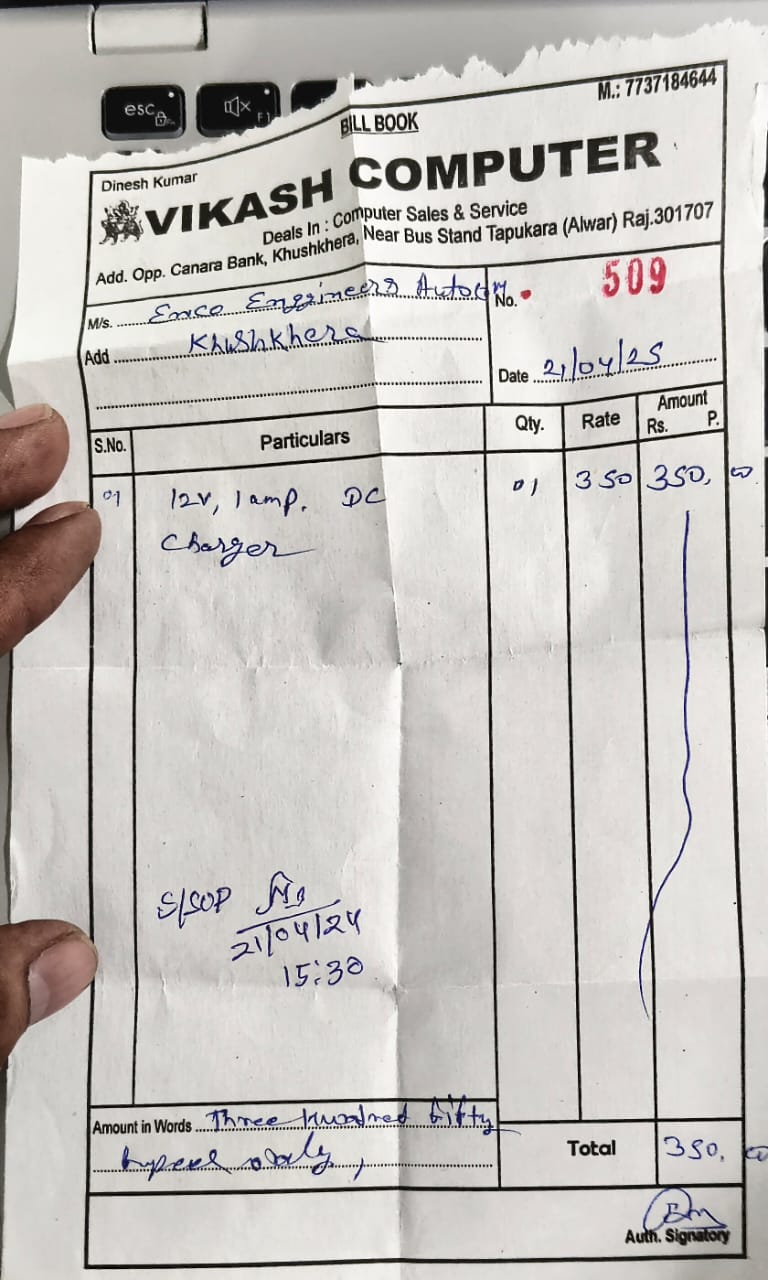 esc
F1
M.: 7737184644
BILL BOOK
Dinesh Kumar
VIKASH COMPUTER
Deals In : Computer Sales & Service
Add. Opp. Canara Bank, Khushkhera, Near Bus Stand Tapukara (Alwar) Raj.301707
M/s. Enco Engineers Autocom
No. 509
Add Khushkhera
Date 21/04/25
S.No. Particulars Qty. Rate Amount
Rs. P.
01 12v, 1 amp. DC 01 350 350, 00
Charger
S/SOP
21/04/24
15:30
Amount in Words Three hundred fifty
rupees only,
Total 350, 00
Auth. Signatory